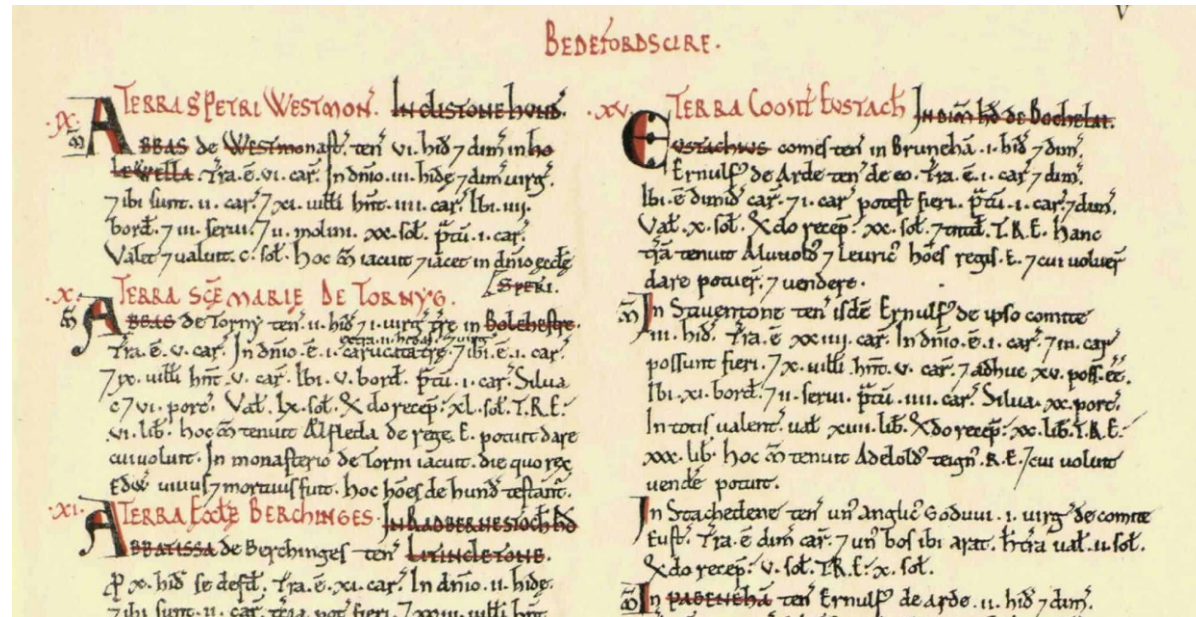 V
BEDEFORDSCIRE.
.IX. TERRA S PETRI WESTMON. IN CLISTONE HUND.
ꝳ ABBAS de Westmonast. ten VI. hid 7 dim in ho
lewella. Tra. e. VI. car. In dnio. III. hide 7 dim uirg.
7 ibi sunt. II. car. 7 XI. uilli hnt. IIII. car. Ibi. IIII.
bord. 7 III. serui. 7 II. molini. XX. sol. ptu. I. car.
Valet 7 ualuit. C. sol. Hoc ꝳ iacuit 7 iacet in dnio eccle
S PETRI.
.X. TERRA SCE MARIE DE TORNYG.
ꝳ ABBAS de Torny ten. II. hid 7 I. uirg tre in Bolehestre.
extra. II. hid 7 I. uirg
Tra. e. V. car. In dnio. e. I. carucata tre. 7 ibi. e. I. car.
7 IX. uilli hnt. V. car. Ibi. V. bord. ptu. I. car. Silua
C 7 VI. porc. Val. LX. sol. Qdo recep. XL. sol. T.R.E.
VI. lib. Hoc ꝳ tenuit Ælfleda de rege. E. potuit dare
cui uoluit. In monasterio de Torni iacuit. die quo rex
Edw uiuus 7 mortuus fuit. hoc hoes de hund testant.
.XI. TERRA ECCLE BERCHINGES. IN RADBERNESTOCH HD
ABBATISSA de Berchinges ten LITINCLETONE.
p X. hid se defd. Tra. e. XI. car. In dnio. II. hide.
7 ibi sunt. II. car. tcia pot fieri. 7 XIII. uilli hnt.
.XV. TERRA COMIT EUSTACH IN DIM HD DE BOCHELAI.
EUSTACHIUS comes ten in Bruneha. I. hid 7 dim.
Ernulf de Arde ten de eo. Tra. e. I. car 7 dim.
Ibi. e dimid car. 7 I. car potest fieri. ptu. I. car. 7 dim.
Val. X. sol. Qdo recep. XX. sol. 7 tntd. T.R.E. Hanc
tra tenuit Aluuold 7 Leuric hoes regis. E. 7 cui uoluer
dare potuer. 7 uendere.
ꝳ In Stauentone ten isde Ernulf de ipso comite
III. hid. Tra. e XXIIII. car. In dnio. e. I. car. 7 III. car
possunt fieri. 7 X. uilli. hnt. V. car. 7 adhuc XV. poss. ee.
Ibi. XI. bord. 7 II. serui. ptu. IIII. car. Silua. XX. porc.
In totis ualent. ual XIIII. lib. Qdo recep. XX. lib. T.R.E.
XXX. lib. Hoc ꝳ tenuit Adelold teign. R.E. 7 cui uoluit
uende potuit.
In Stachedene ten un anglic Goduui. I. uirg de comite
Eust. Tra. e. dim car. 7 un bos ibi arat. h tra ual. II. sol.
Qdo recep. V. sol. T.R.E. X. sol.
ꝳ In PABENEHA ten Ernulf de arde. II. hid 7 dim.